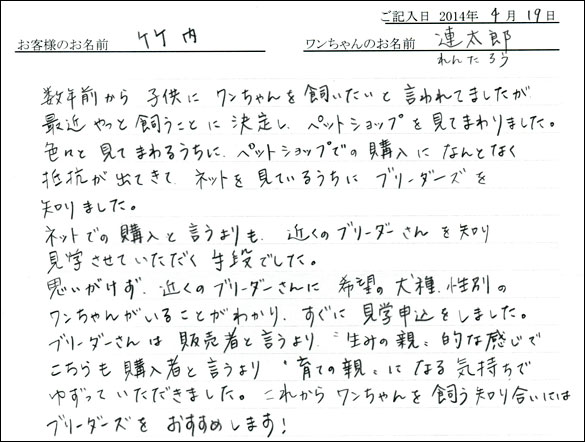 ご記入日 2014年 4月 19日
お客様のお名前 竹内 ワンちゃんのお名前 連太郎
れんたろう
数年前から 子供に ワンちゃんを 飼いたいと 言われてましたが
最近 やっと 飼うことに 決定し、ペットショップを 見てまわりました。
色々と 見てまわるうちに、ペットショップでの 購入に なんとなく
抵抗が 出てきて、ネットを 見ているうちに ブリーダーズを
知りました。
ネットでの 購入と 言うよりも、近くの ブリーダーさんを 知り
見学させていただく 手段でした。
思いがけず、近くの ブリーダーさんに 希望の 犬種、性別の
ワンちゃんがいることがわかり、すぐに 見学申込をしました。
ブリーダーさんは 販売者と 言うより、"生みの親" 的な感じで
こちらも 購入者と 言うより "育ての親" になる 気持ちで
ゆずって いただきました。これから ワンちゃんを 飼う 知り合いには
ブリーダーズを おすすめします!